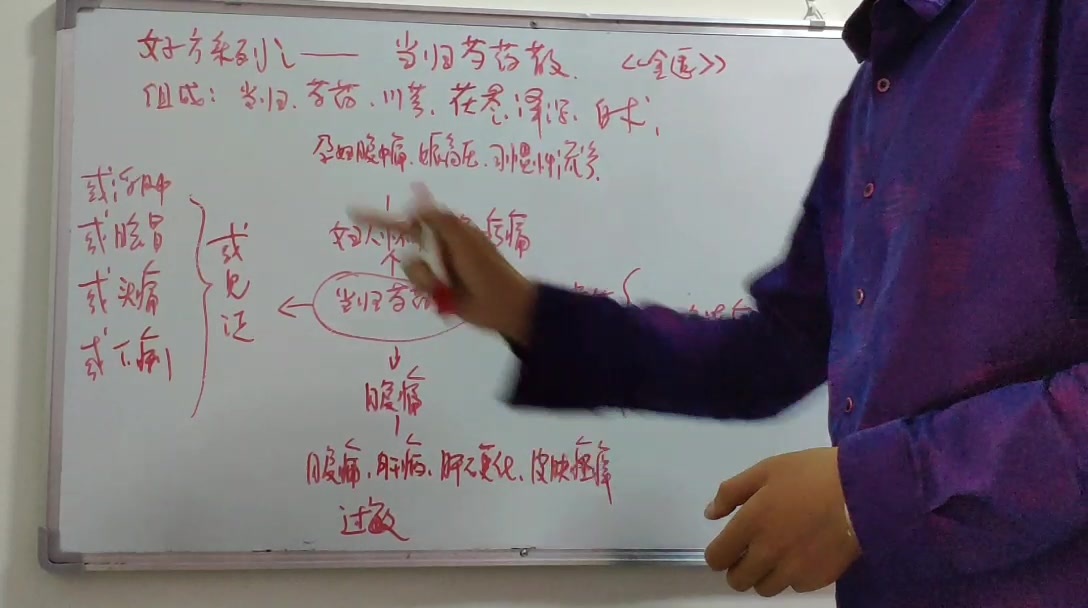 好方系列之——当归芍药散.《金匮》
组成:当归、芍药、川芎、茯苓、泽泻、白术、
孕妇腹中痛、妊高压、习惯性流产
或浮肿
或眩冒
或头痛
或下利
或见证
妇人怀 㽲痛
当归芍药
腹痛
腹痛、肝病、肝硬化、皮肤瘙痒
过敏